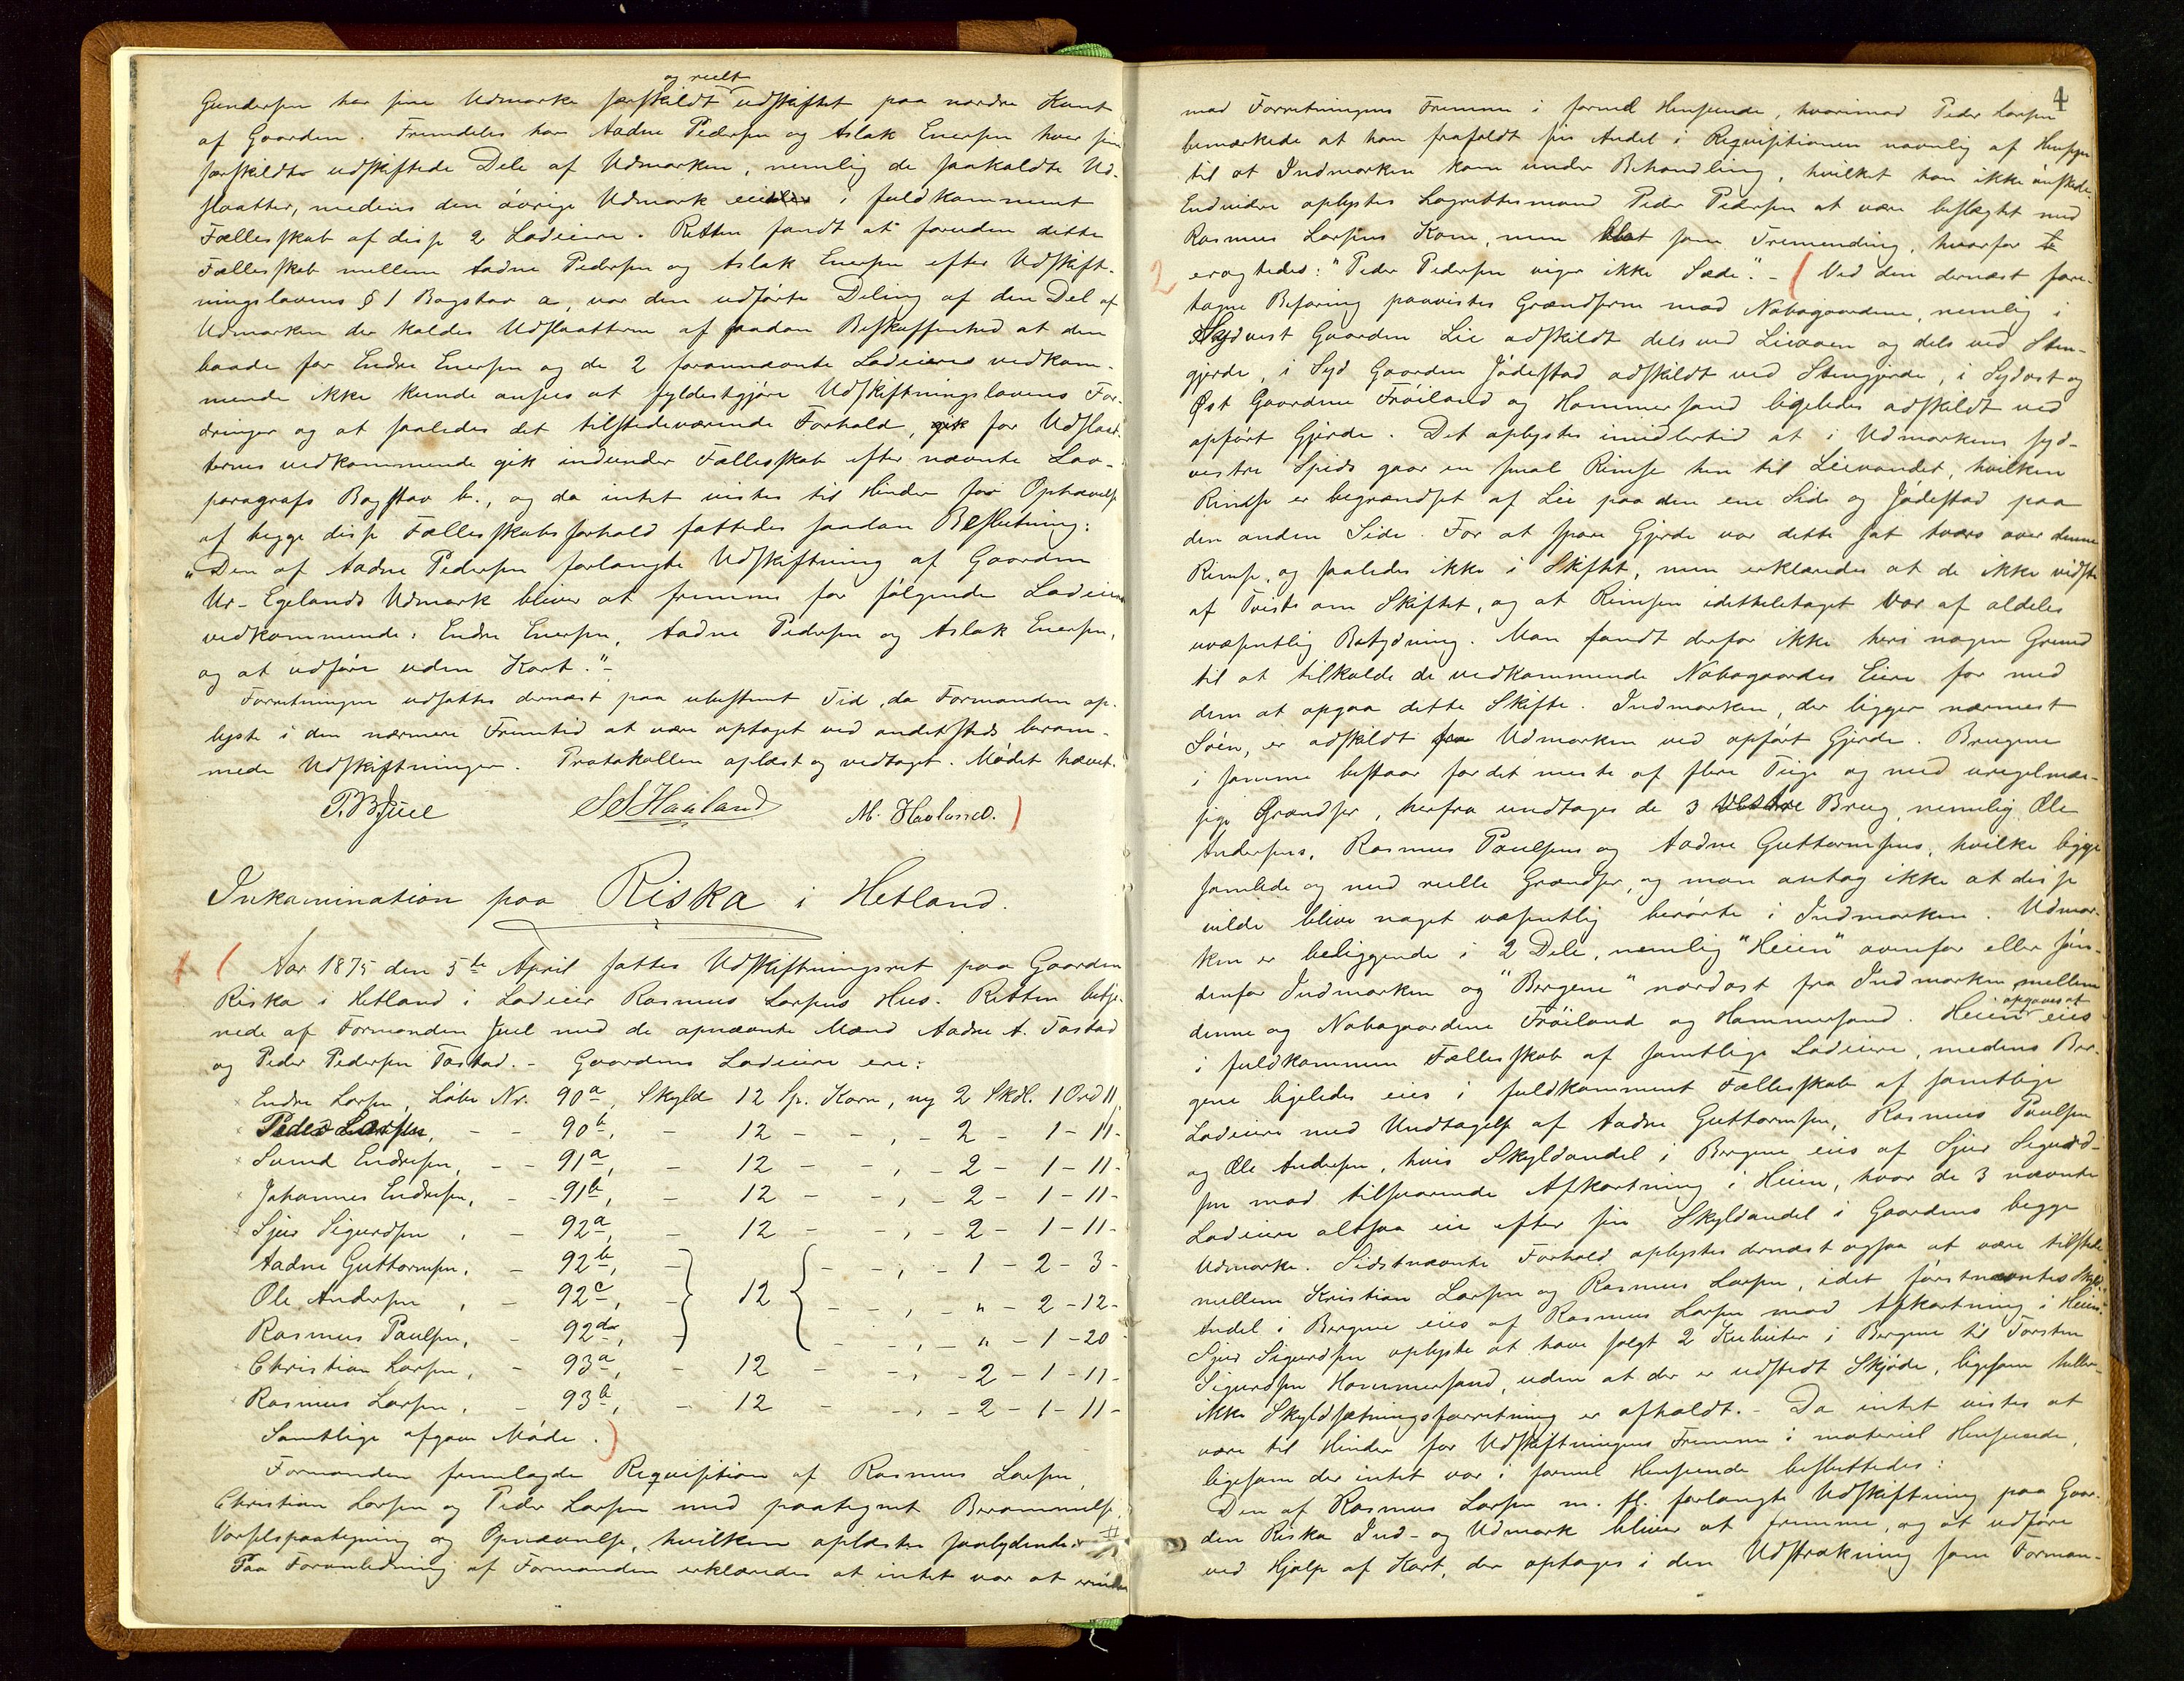 og reelt
Gundersen har sine Udmarke særskildt udskiftet paa nordre Kant
af Gaarden. Fremdeles har Aadne Pedersen og Aslak Enersen hver sin
særskildte udskiftede Dele af Udmarken, nemlig de saakaldte Ud-
slaatter, medens den øvrige Udmark eies i fuldkomment
Fællesskab af disse 2 Lodeiere. Retten fandt at foruden dette
Fællesskab mellem Aadne Pedersen og Aslak Enersen efter Udskift-
ningslovens § 1 Bogstav a, var den udførte Deling af den Del af
Udmarken der kaldes Udslaatterne af saadan Beskaffenhed at den
baade for Endre Enersen og de 2 forannævnte Lodeieres vedkom-
mende ikke kunde ansees at fyldestgjøre Udskiftningslovens For-
dringer og at saaledes det tilstedeværende Forhold, for Udslaat-
ternes vedkommende gik indunder Fællesskab efter nævnte Lov-
paragrafs Bogstav b., og da intet vistes til Hinder for Ophævelse
af begge disse Fællesskabsforhold fattedes saadan Beslutning:
"Den af Aadne Pedersen forlangte Udskiftning af Gaarden
Ur-Egelands Udmark bliver at fremme for følgende Lodeiere
vedkommende: Endre Enersen, Aadne Pedersen og Aslak Enersen,
og at udføre uden Kart."-
Forretningen udsattes dernæst paa ubestemt Tid, da Formanden op-
lyste i den nærmere Fremtid at være optaget ved andetsteds beram-
mede Udskiftninger. Protokollen oplæst og vedtaget. Mødet hævet.
P. B. Juel S S Haaland M. Havland. )
Inkamination paa Riska i Hetland.
1 ( Aar 1875 den 5te April sattes Udskiftningsret paa Gaarden
Riska i Hetland i Lodeier Rasmus Larsens Hus. Retten betje-
nedes af Formanden Juel med de opnævnte Mænd Aadne A. Tastad
og Peder Pedersen Tastad. - Gaardens Lodeiere ere:
x Endre Larsen, Løbe Nr. 90a, Skyld 12 Sp. Korn, ny 2 Skdl. 1 Ord 11
Peder Larsen, - - 90b, - 12 - - , - 2 - 1 - 11 -
x Svend Endresen, - - 91a, - 12 - - , - 2 - 1 - 11 -
x Johannes Endresen, - - 91b, - 12 - - , - 2 - 1 - 11 -
x Sjur Sigurdsen , - 92a, - 12 - , - 2 - 1 - 11 -
Aadne Guttormsen, - 92b, - } 12 { - - , - 1 - 2 - 3 -
Ole Andersen , - 92c, - - - , - " - 2 - 12 -
Rasmus Paulsen, - 92d, - - - , - " - 1 - 20 -
x Christian Larsen, - 93a, - 12 - - , - 2 - 1 - 11 -
x Rasmus Larsen, - 93b, - 12 - - , - 2 - 1 - 11 -
Samtlige afgave Møde. )
Formanden fremlagde Requisition af Rasmus Larsen,
Christian Larsen og Peder Larsen med paategnet Berammelse,
Varselspaategning og Opnævnelse, hvilken oplæstes saalydende:
Paa Foranledning af Formanden erklæredes at intet var at erindre
4
mod Forretningens Fremme i formel Henseende, hvorimod Peder Larsen
bemærkede at han frafaldt sin Andel i Requisitionen navnlig af Hensyn
til at Indmarken kom under Behandling, hvilket han ikke ønskede.
Endvidere oplystes Lagrettesmand Peder Pedersen at være beslægtet med
Rasmus Larsens Kone, men blot som Tremending, hvorfor
2 eragtedes: "Peder Pedersen viger ikke Sæde." - ( Ved den dernæst fore-
tagne Befaring paavistes Grændserne mod Nabogaardene, nemlig i
Sydvest Gaarden Lie adskildt dels ved Lieaaen og dels ved Sten-
gjerde, i Syd Gaarden Jødestad adskildt ved Stengjerde, i Sydost og
Øst Gaardene Frøiland og Hommersand ligeledes adskildt ved
opført Gjerde. Det oplystes imidlertid at i Udmarkens syd-
vestre Spids gaar en smal Remse hen til Lievandet, hvilken
Remse er begrændset af Lie paa den ene Side og Jødestad paa
den anden Side. For at spare Gjerde var dette sat tværs over denne
Remse, og saaledes ikke i Skiftet, men erklæredes at de ikke vidste
af Tvist om Skiftet, og at Remsen idetheletaget var af aldeles
uvæsentlig Betydning. Man fandt derfor ikke heri nogen Grund
til at tilkalde de vedkommende Nabogaardes Eiere for med
dem at opgaa dette Skifte. Indmarken, der ligger nærmest
Søen, er adskildt fra Udmarken ved opført Gjerde. Brugene
i samme bestaar for det meste af flere Teige og med uregelmæs-
sige Grændser, herfra undtages de 3 vestre Brug, nemlig Ole
Andersens, Rasmus Paulsens og Aadne Guttormsens, hvilke ligge
samlede og med reelle Grændser, og man antog ikke at disse
vilde blive noget væsentlig berørte i Indmarken. Udmar-
ken er beliggende i 2 Dele, nemlig "Heien" ovenfor eller søn-
denfor Indmarken og "Bergene" nordost fra Indmarken mellem
denne og Nabogaardene Frøiland og Hommersand. Heien opgaves at eies
i fuldkommen Fællesskab af samtlige Lodeiere, medens Ber-
gene ligeledes eies i fuldkomment Fællesskab af samtlige
Lodeiere med Undtagelse af Aadne Guttormsen, Rasmus Paulsen
og Ole Andersen, hvis Skyldandel i Bergene eies af Sjur Sigurd-
sen mod tilsvarende Afkortning i Heien, hvor de 3 nævnte
Lodeiere altsaa eie efter sin Skyldandel i Gaardens begge
Udmarke. Sidstnævnte Forhold oplystes dernæst ogsaa at være tilstede
mellem Kristian Larsen og Rasmus Larsen, idet førstnævntes Skyld-
Andel i Bergene eies af Rasmus Larsen mod Afkortning i Heien.
Sjur Sigurdsen oplyste at have solgt 2 Kubeiter i Bergene til Torsten
Sigurdsen Hommersand, uden at der er udstedt Skjøde, ligesom heller
ikke Skyldsætningsforretning er afholdt. - Da intet vistes at
være til Hinder for Udskiftningens Fremme i materiel Henseende,
ligesom der intet var i formel Henseende besluttedes:
Den af Rasmus Larsen m. fl. forlangte Udskiftning paa Gaar-
den Riska Ind- og Udmark bliver at fremme, og at udføre
ved Hjælp af Kart, der optages i den Udstrækning som Forman-